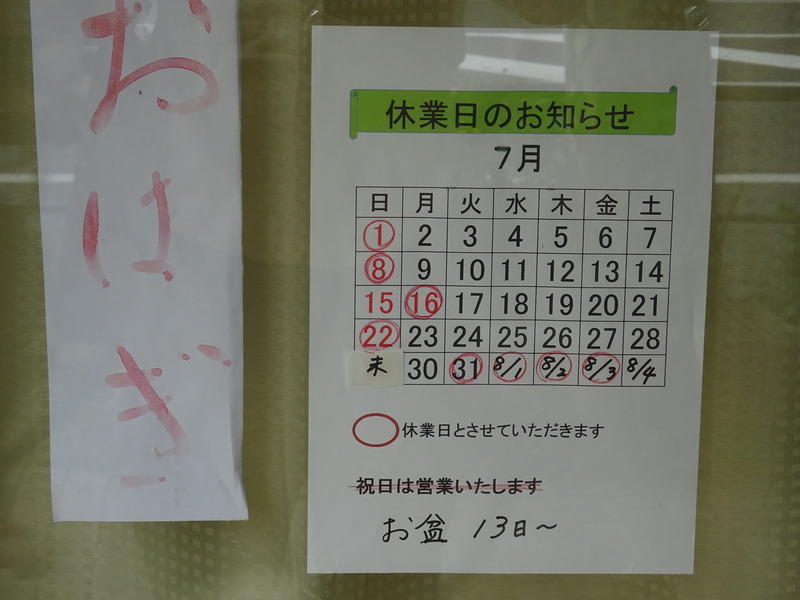 おはぎ
休業日のお知らせ
7月
日 月 火 水 木 金 土
1 2 3 4 5 6 7
8 9 10 11 12 13 14
15 16 17 18 19 20 21
22 23 24 25 26 27 28
未 30 31 8/1 8/2 8/3 8/4
休業日とさせていただきます
祝日は営業いたします
お盆 13日~